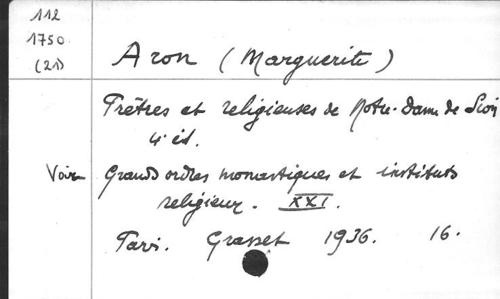 112
1750
(21)
Aron (Marguerite)
Prêtres et religieuses de Notre-Dame de Sion
4e éd.
Voir Grands ordres monastiques et instituts
religieux. XXI.
Paris. Grasset 1936. 16.